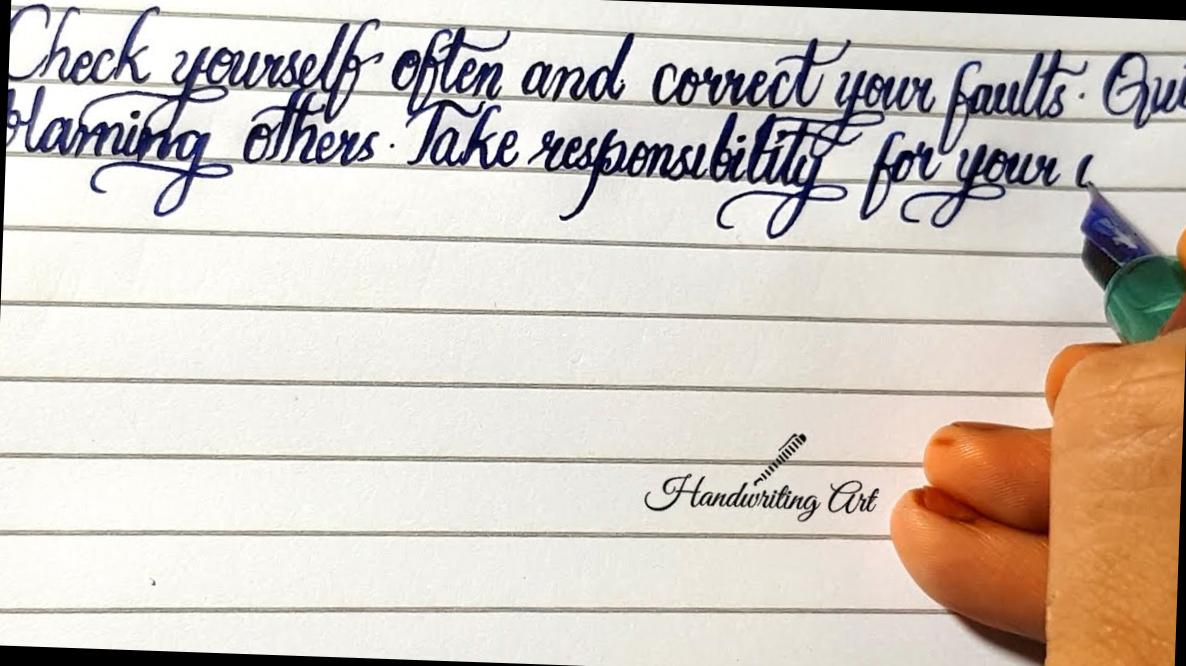 Check yourself often and correct your faults. Qui
blaming others. Take responsibility for your
Handwriting Art